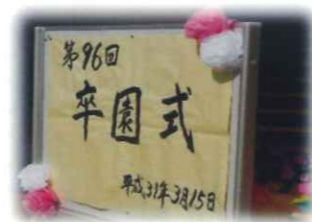 第96回
卒園式
平成31年3月15日